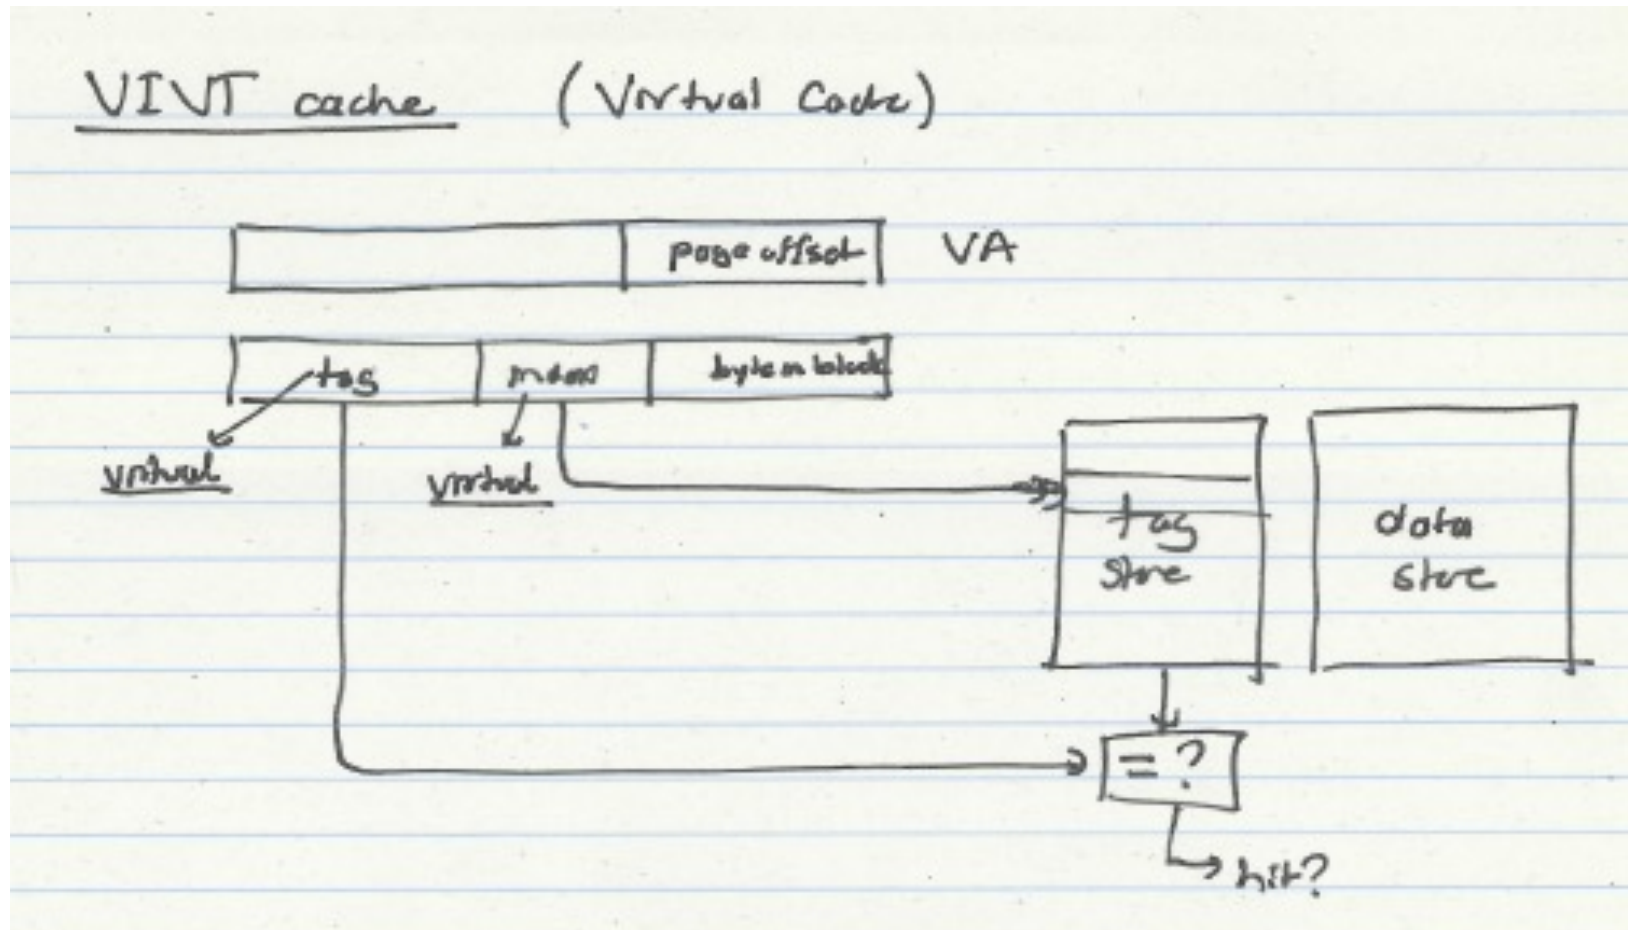 VIVT cache (Virtual Cache)
page offset VA
tag index byte in block
virtual virtual
tag store data store
= ?
hit?